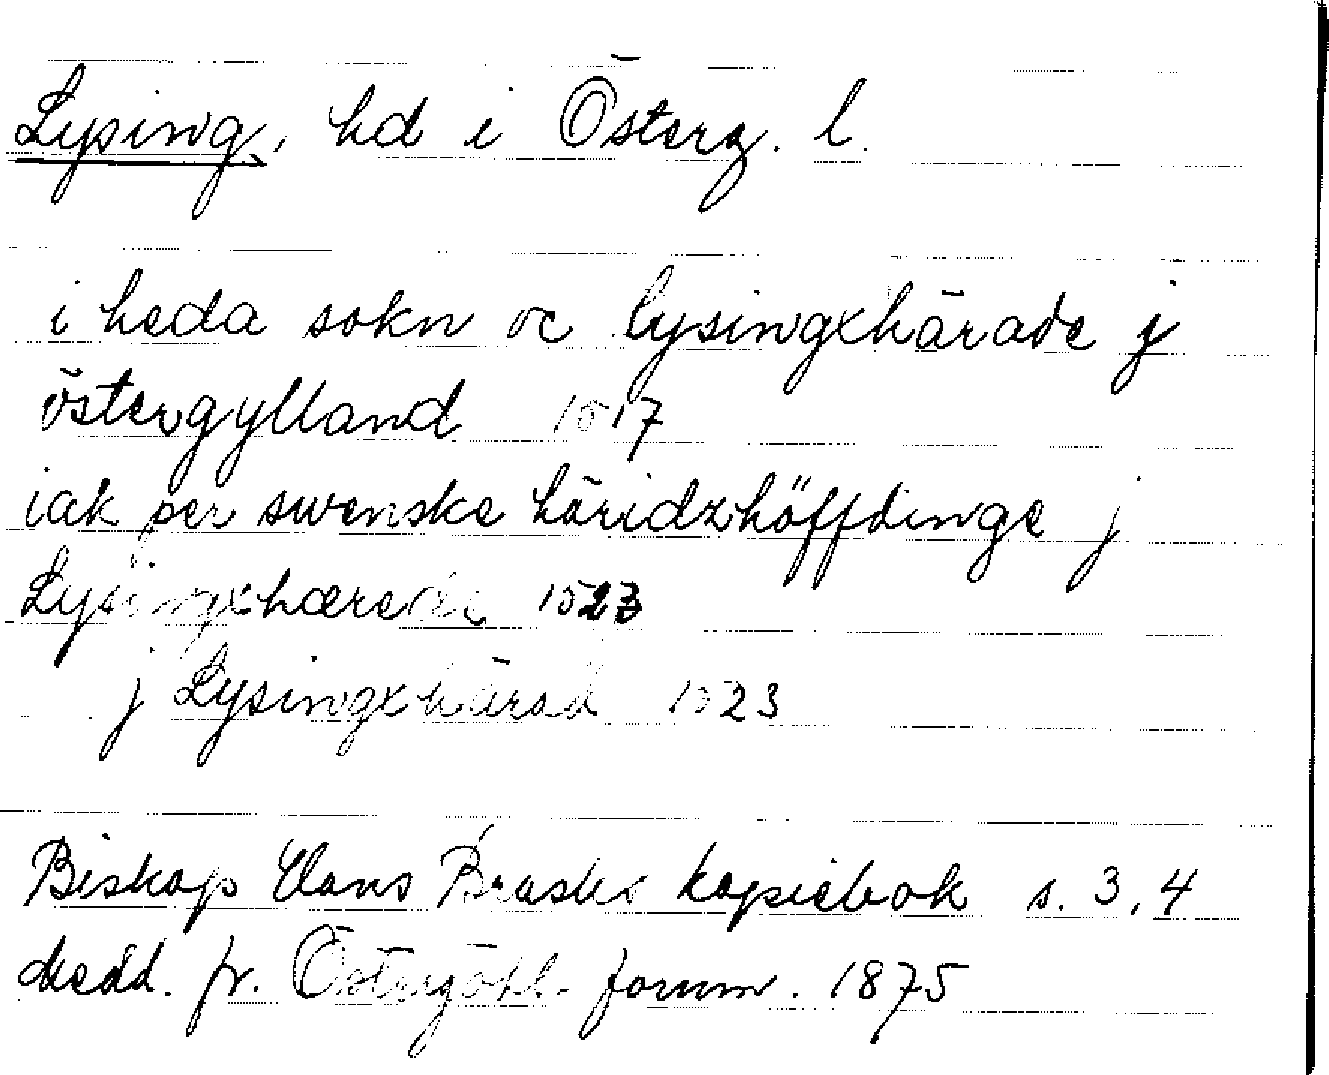 Lysing, hd i Österg. l.
i heda sokn oc lysingxhärade j
östergylland 1517
iak per swenske häridzhöffdinge j
Lysingxhærede 1523
j Lysingxhärad 1523
Biskop Hans Brasks kopiebok s. 3, 4
Medd. fr. Östergötl. fornm. 1875